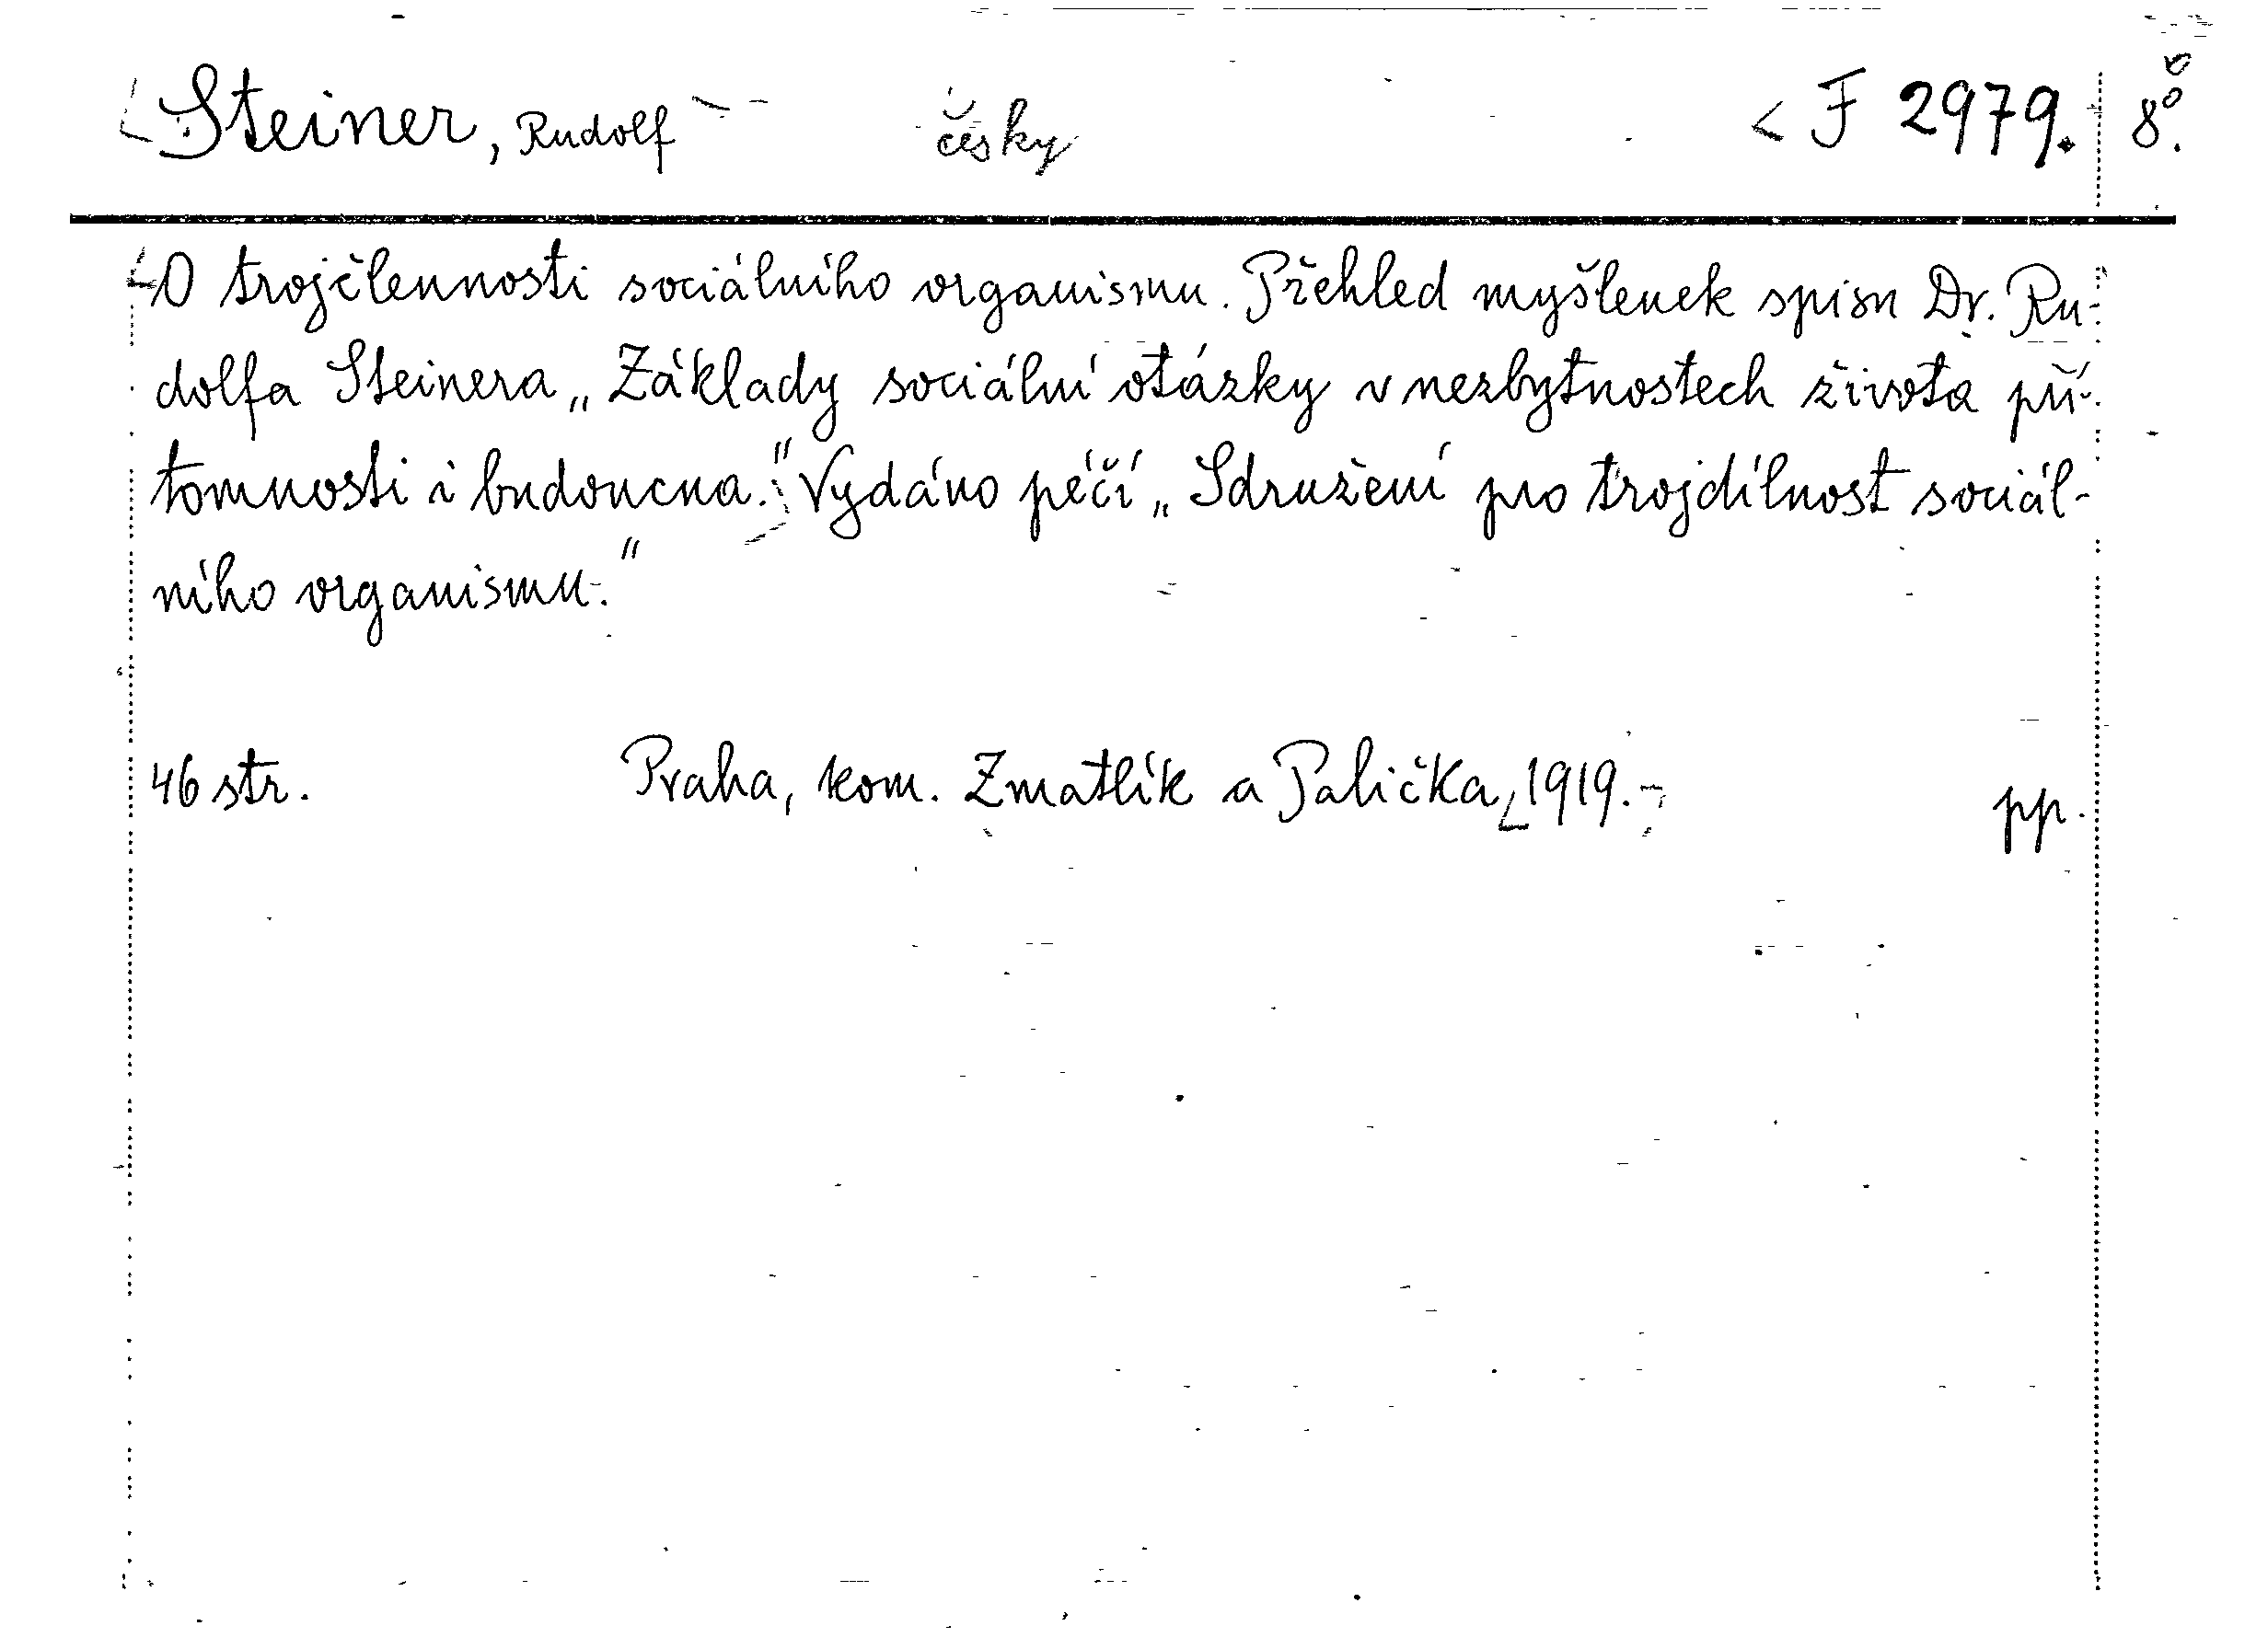 Steiner, Rudolf česky F 2979. 8°.
O trojčlennosti sociálního organismu. Přehled myšlenek spisu Dr. Ru-
dolfa Steinera „Základy sociální otázky v nezbytnostech života pří-
tomnosti i budoucna." Vydáno péčí „Sdružení pro trojdílnost sociál-
ního organismu."
46 str. Praha, kom. Zmatlík a Palička, 1919.- pp.